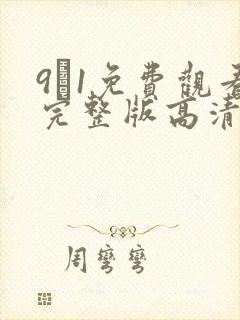 9 1免費觀看
完整版高清
周彎彎